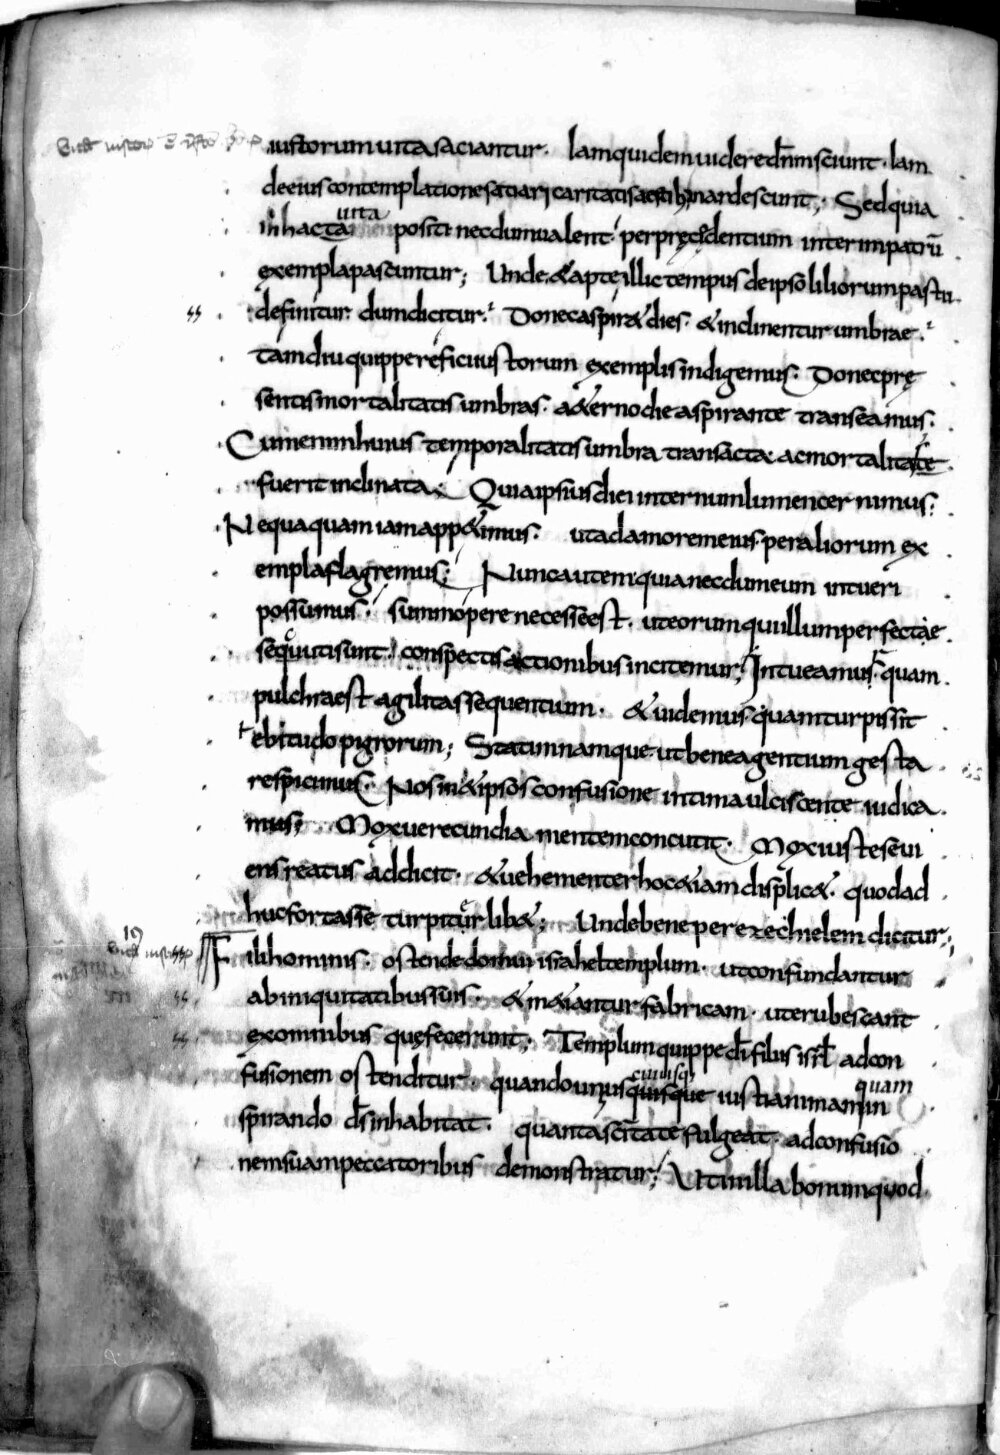 iustorum uita saciantur. Iam quidem uidere dn̄m sciunt. Iam
de eius contemplatione satiari caritatis aestib; inardescunt; Sed quia
in hac uita positi necdum ualent. per pręcedentium interim patrū
exempla pascuntur; Unde & apte illic tempus de ipso liliorum pastu
definitur dum dicitur. Donec aspir& dies. & inclinentur umbrae.
tamdiu quippe refici iustorum exemplis indigemus. Donec prę
sentis mortalitatis umbras. a&erno die aspirante transeamus.
Cum enim huius temporalitatis umbra transacta ac mortalitate
fuerit inclinata. Quia ipsius diei internum lumen cernimus.
Nequaquam iam app&imus. ut ad amorem eius per aliorum ex
empla flagremus; Nunc autem quia necdum eum intueri
possumus. summopere necesse est. ut eorum qui illum perfectae
sequuti sunt. conspectis actionibus incitemur; Intueamur quam
pulchra est agilitas sequentium. & uidemus quam turpis sit
ebitudo pigrorum; Statim namque ut bene agentium gesta
respicimus. Nosm&ipsos confusione intima ulciscente iudica
mus; Mox uerecundia mentem concutit. Mox iuste seui
ens reatus addicit. & uehementer hoc &iam displic&. quod ad
huc fortasse turpiter lib&; Unde bene per ezechielem dicitur;
Fili hominis. ostende domui israhel templum. ut confundantur
ab iniquitatibus suis. & m&iantur fabricam. ut erubescant
ex omnibus quę fecerunt; Templum quippe dī filiis isrl̄ ad con
fusionem ostenditur. quando unus cuiusq; quisque iusti animam quam in
spirando ds̄ inhabitat. quanta sc̄itate fulgeat. ad confusio
nem suam peccatoribus demonstratur; Ut in illa bonum quod